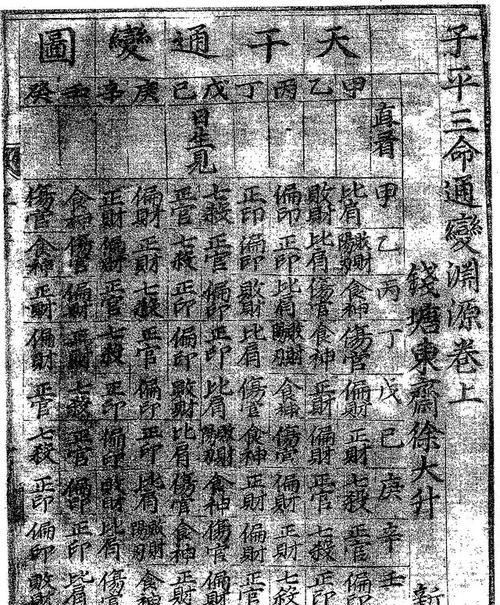 子平三命通變淵源卷上
錢塘東齋徐大升
天干通變圖
甲乙丙丁戊己庚辛壬癸
直看
日生見
甲 比肩 敗財 偏印 正印 七殺 正官 偏財 正財 食神 傷官
乙 劫財陽刃 比肩 正印 偏印 正官 七殺 正財 偏財 傷官 食神
丙 食神 傷官 比肩 敗財 偏印 正印 七殺 正官 偏財 正財
丁 傷官 食神 劫財陽刃 比肩 正印 偏印 正官 七殺 正財 偏財
戊 偏財 正財 食神 傷官 比肩 敗財 偏印 正印 七殺 正官
己 正財 偏財 傷官 食神 劫財陽刃 比肩 正印 偏印 正官 七殺
庚 七殺 正官 偏財 正財 食神 傷官 比肩 敗財 偏印 正印
辛 正官 七殺 正財 偏財 傷官 食神 劫財陽刃 比肩 正印 偏印
壬 偏印 正印 七殺 正官 偏財 正財 食神 傷官 比肩 敗財